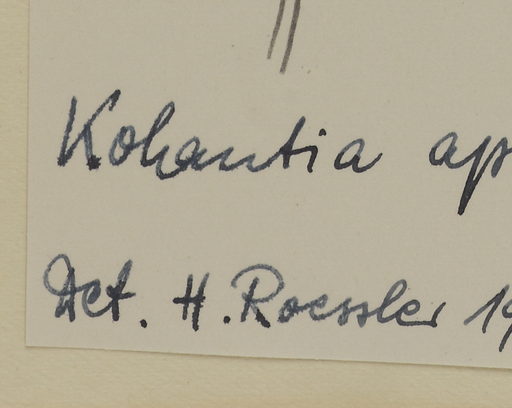 Kohantia ap
Det. H. Roessler 19